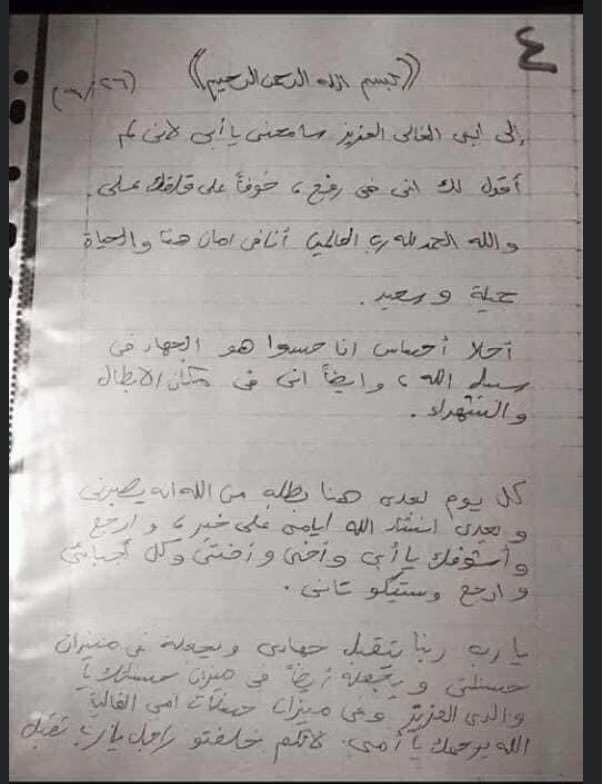 ٤
((بسم الله الرحمن الرحيم)) (٢٦/٦)
إلى ابى الغالى العزيز سامحنى يا أبى لانى لم
أقول لك انى فى رفح، خوفاً على قلقك على
والله الحمد لله رب العالمين أنا فى امان هنا والحياة
جميلة وسعيد.
أحلا أحساس انا حسوا هو الجهاد فى
سبيل الله، وايضاً انى فى مكان الابطال
والشهداء.
كل يوم بعدى هنا بطلب من الله انه يصبرنى
ويعدى انشاء الله أيامى على خير، وارجع
وأشوفك يا أبى وأخى وأختى وكل حبايبى
وارجع وستيكو تانى.
يارب ربنا يتقبل جهادى ويجعله فى ميزان
حسناتى ويجعله أيضاً فى ميزان حسناتك يا
والدى العزيز وفى ميزان حسنات امى الغالية
الله يرحمك يا أمى. لانكم خلفتو راجل يارب تقبل